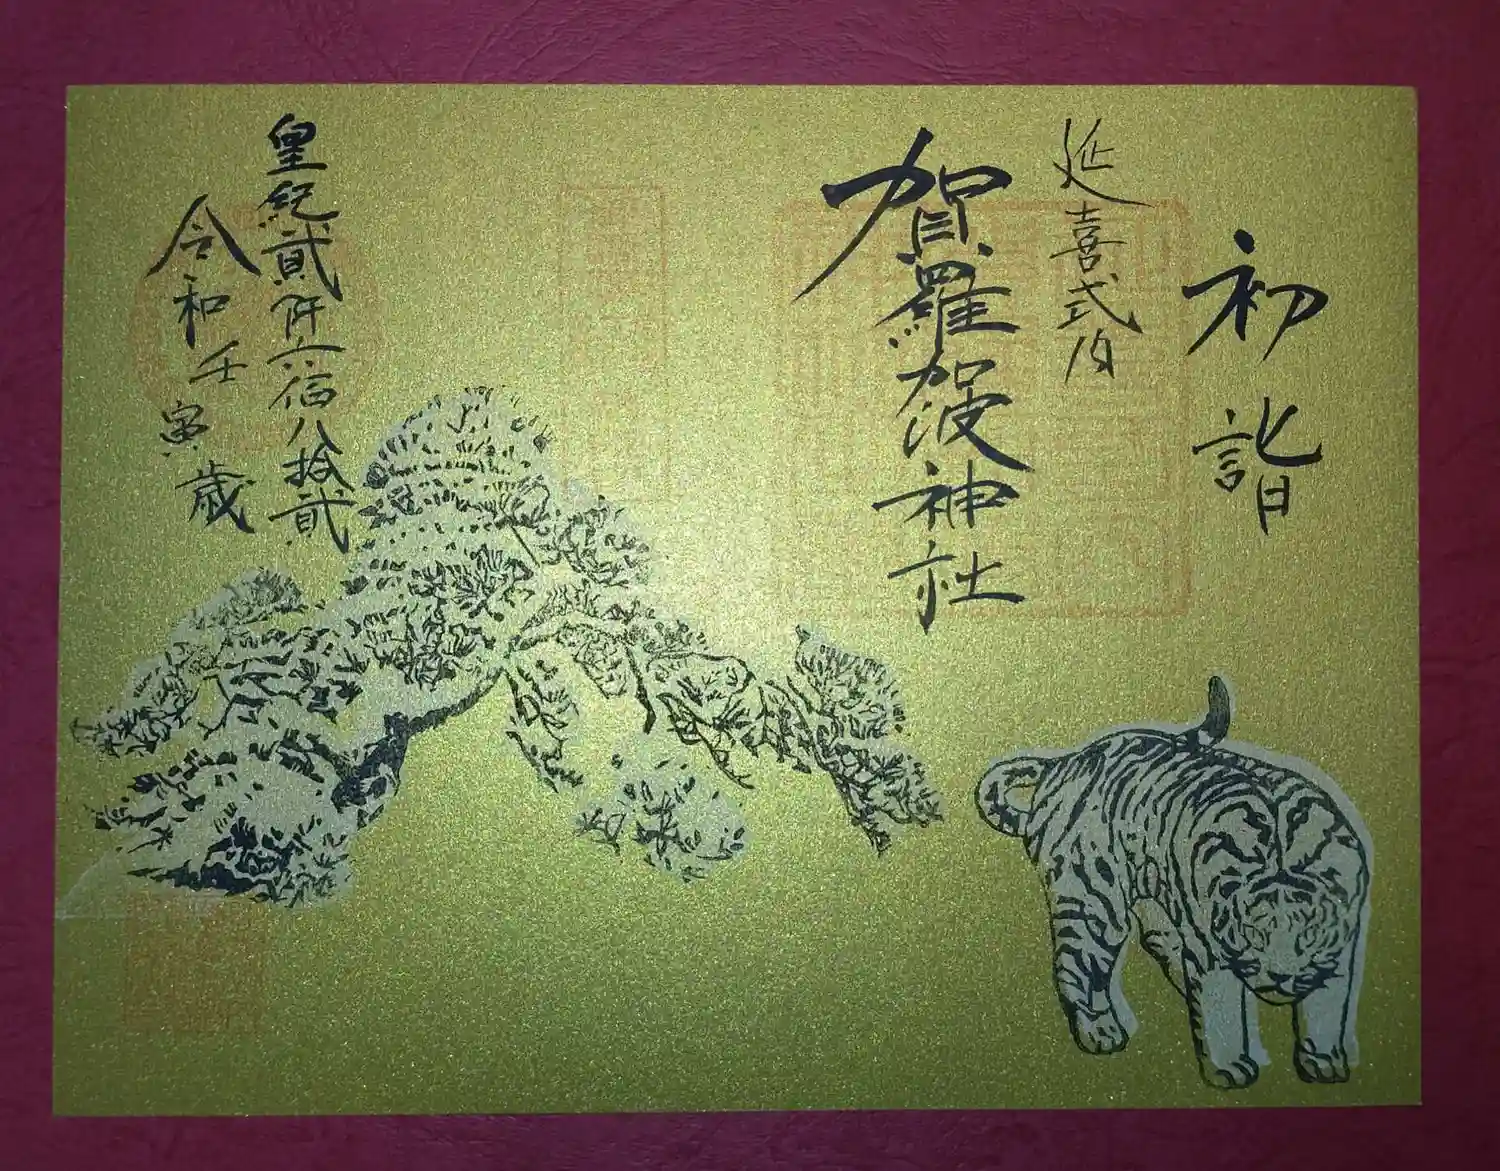 初詣
延喜式内
賀羅加波神社
皇紀貳仟六佰八拾貳
令和壬寅歳